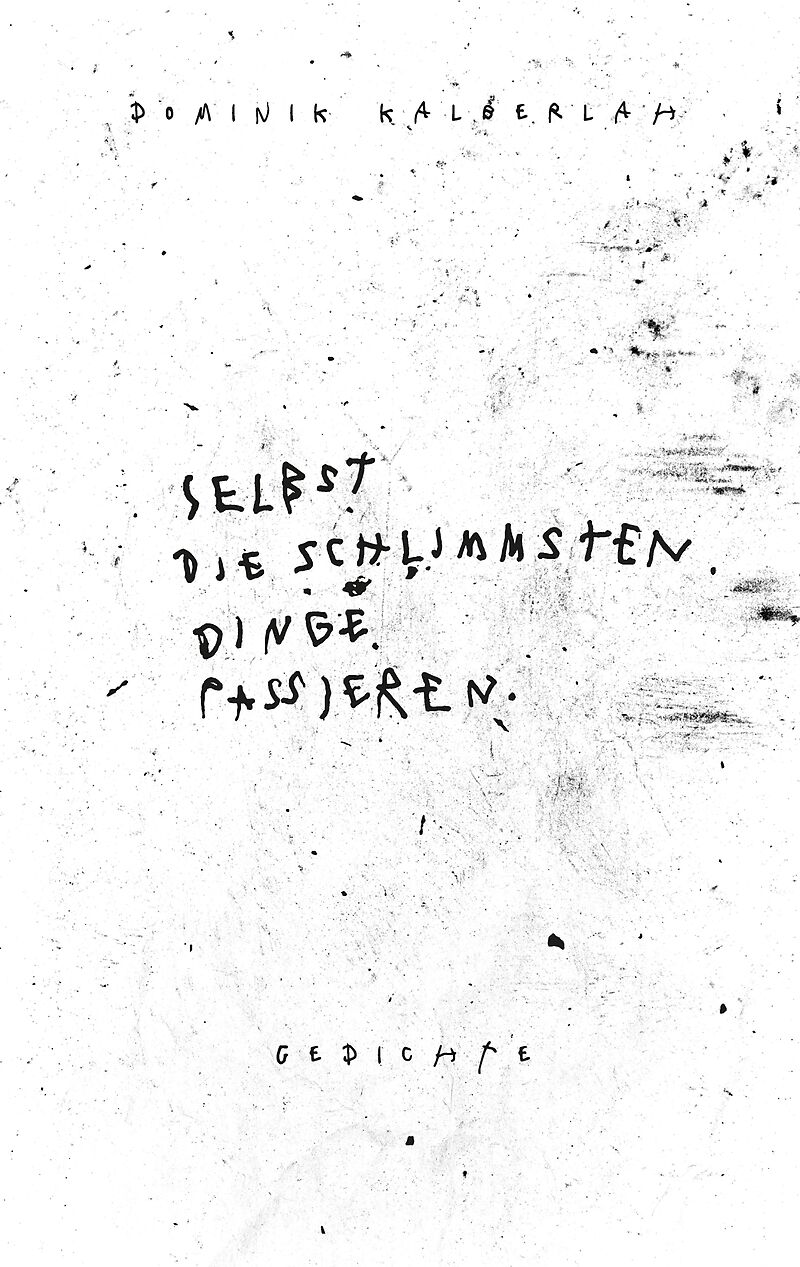 DOMINIK KALBERLAH
SELBST
DIE SCHLIMMSTEN
DINGE
PASSIEREN.
GEDICHTE